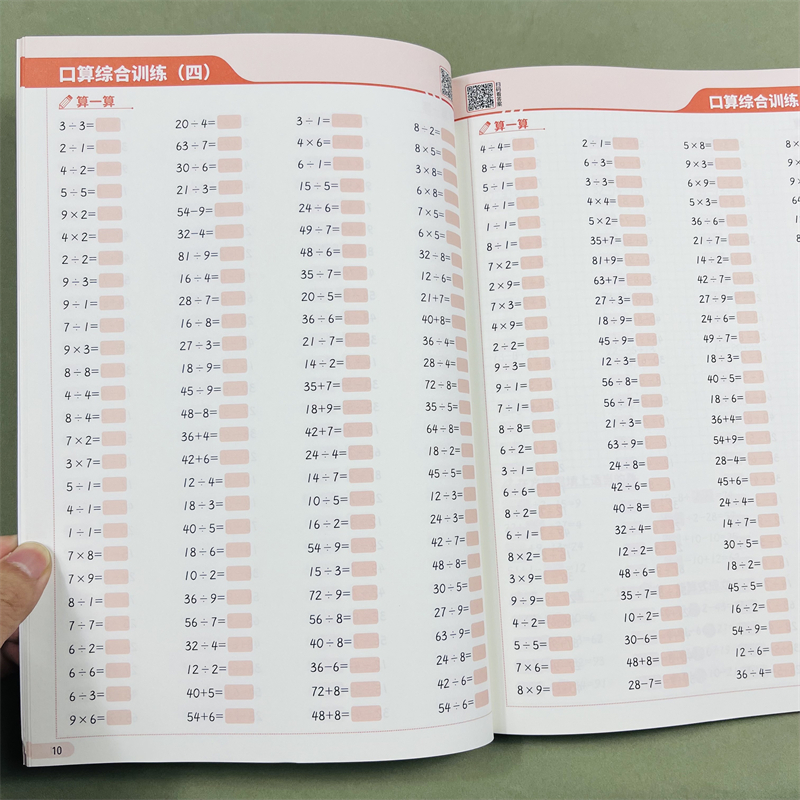 口算综合训练（四）
算一算
3÷3=
2÷1=
4÷2=
5÷5=
9×2=
4×2=
2÷2=
9÷3=
9÷1=
7÷1=
9×3=
8÷8=
4÷4=
8÷4=
7×2=
3×7=
5÷1=
4÷1=
1÷1=
7×8=
7×9=
8÷1=
7÷7=
6÷2=
6÷6=
6÷3=
9×6=
20÷4=
63÷7=
30÷6=
21÷3=
54-9=
32-4=
81÷9=
16÷4=
28÷7=
16÷8=
27÷3=
18÷9=
45÷9=
48-8=
36+4=
42+6=
12÷4=
18÷3=
40÷5=
18÷6=
10÷2=
36÷9=
56÷7=
32÷4=
12÷2=
40+5=
54+6=
3÷1=
4×6=
6÷1=
15÷5=
24÷6=
49÷7=
48÷6=
35÷7=
20÷5=
36÷6=
21÷7=
14÷2=
35+7=
18+9=
42+7=
24÷4=
14÷7=
10÷5=
16÷2=
54÷9=
15÷3=
72÷9=
56÷8=
40÷8=
36-6=
72+8=
48+8=
8÷2=
8×5=
3×8=
6×8=
7×5=
6×5=
32÷8=
12÷6=
21+7=
40+8=
36÷4=
28÷4=
72÷8=
35÷5=
64÷8=
18÷2=
45÷5=
12÷3=
24÷3=
42÷7=
48÷8=
30÷5=
27÷9=
63÷9=
24÷8=
42÷6=
54÷6=
10
扫码看答案
口算综合训练
算一算
4÷4=
8÷4=
5÷1=
4÷1=
1÷1=
8÷1=
7×2=
2×9=
7×3=
4×9=
2÷2=
9÷3=
9÷1=
7÷1=
8÷8=
6÷2=
3÷1=
6÷6=
8÷2=
6÷1=
8×2=
3×9=
9÷9=
4÷2=
5÷5=
7×6=
8×9=
2÷1=
6÷3=
3÷3=
4×4=
5×2=
35+7=
81+9=
63+7=
27÷3=
18÷9=
45÷9=
12÷3=
56÷8=
56÷7=
21÷3=
63÷9=
24÷8=
42÷6=
40÷8=
32÷4=
12÷2=
48÷6=
35÷7=
10÷2=
30-6=
48+8=
28-7=
5×8=
9×3=
6×9=
5×3=
36÷6=
21÷7=
14÷2=
42÷7=
27÷9=
24÷6=
49÷7=
18÷3=
40÷5=
18÷6=
36+4=
54+9=
28-4=
45+6=
24÷4=
14÷7=
30÷5=
18÷2=
45÷5=
16÷2=
54÷9=
12÷6=
36÷4=